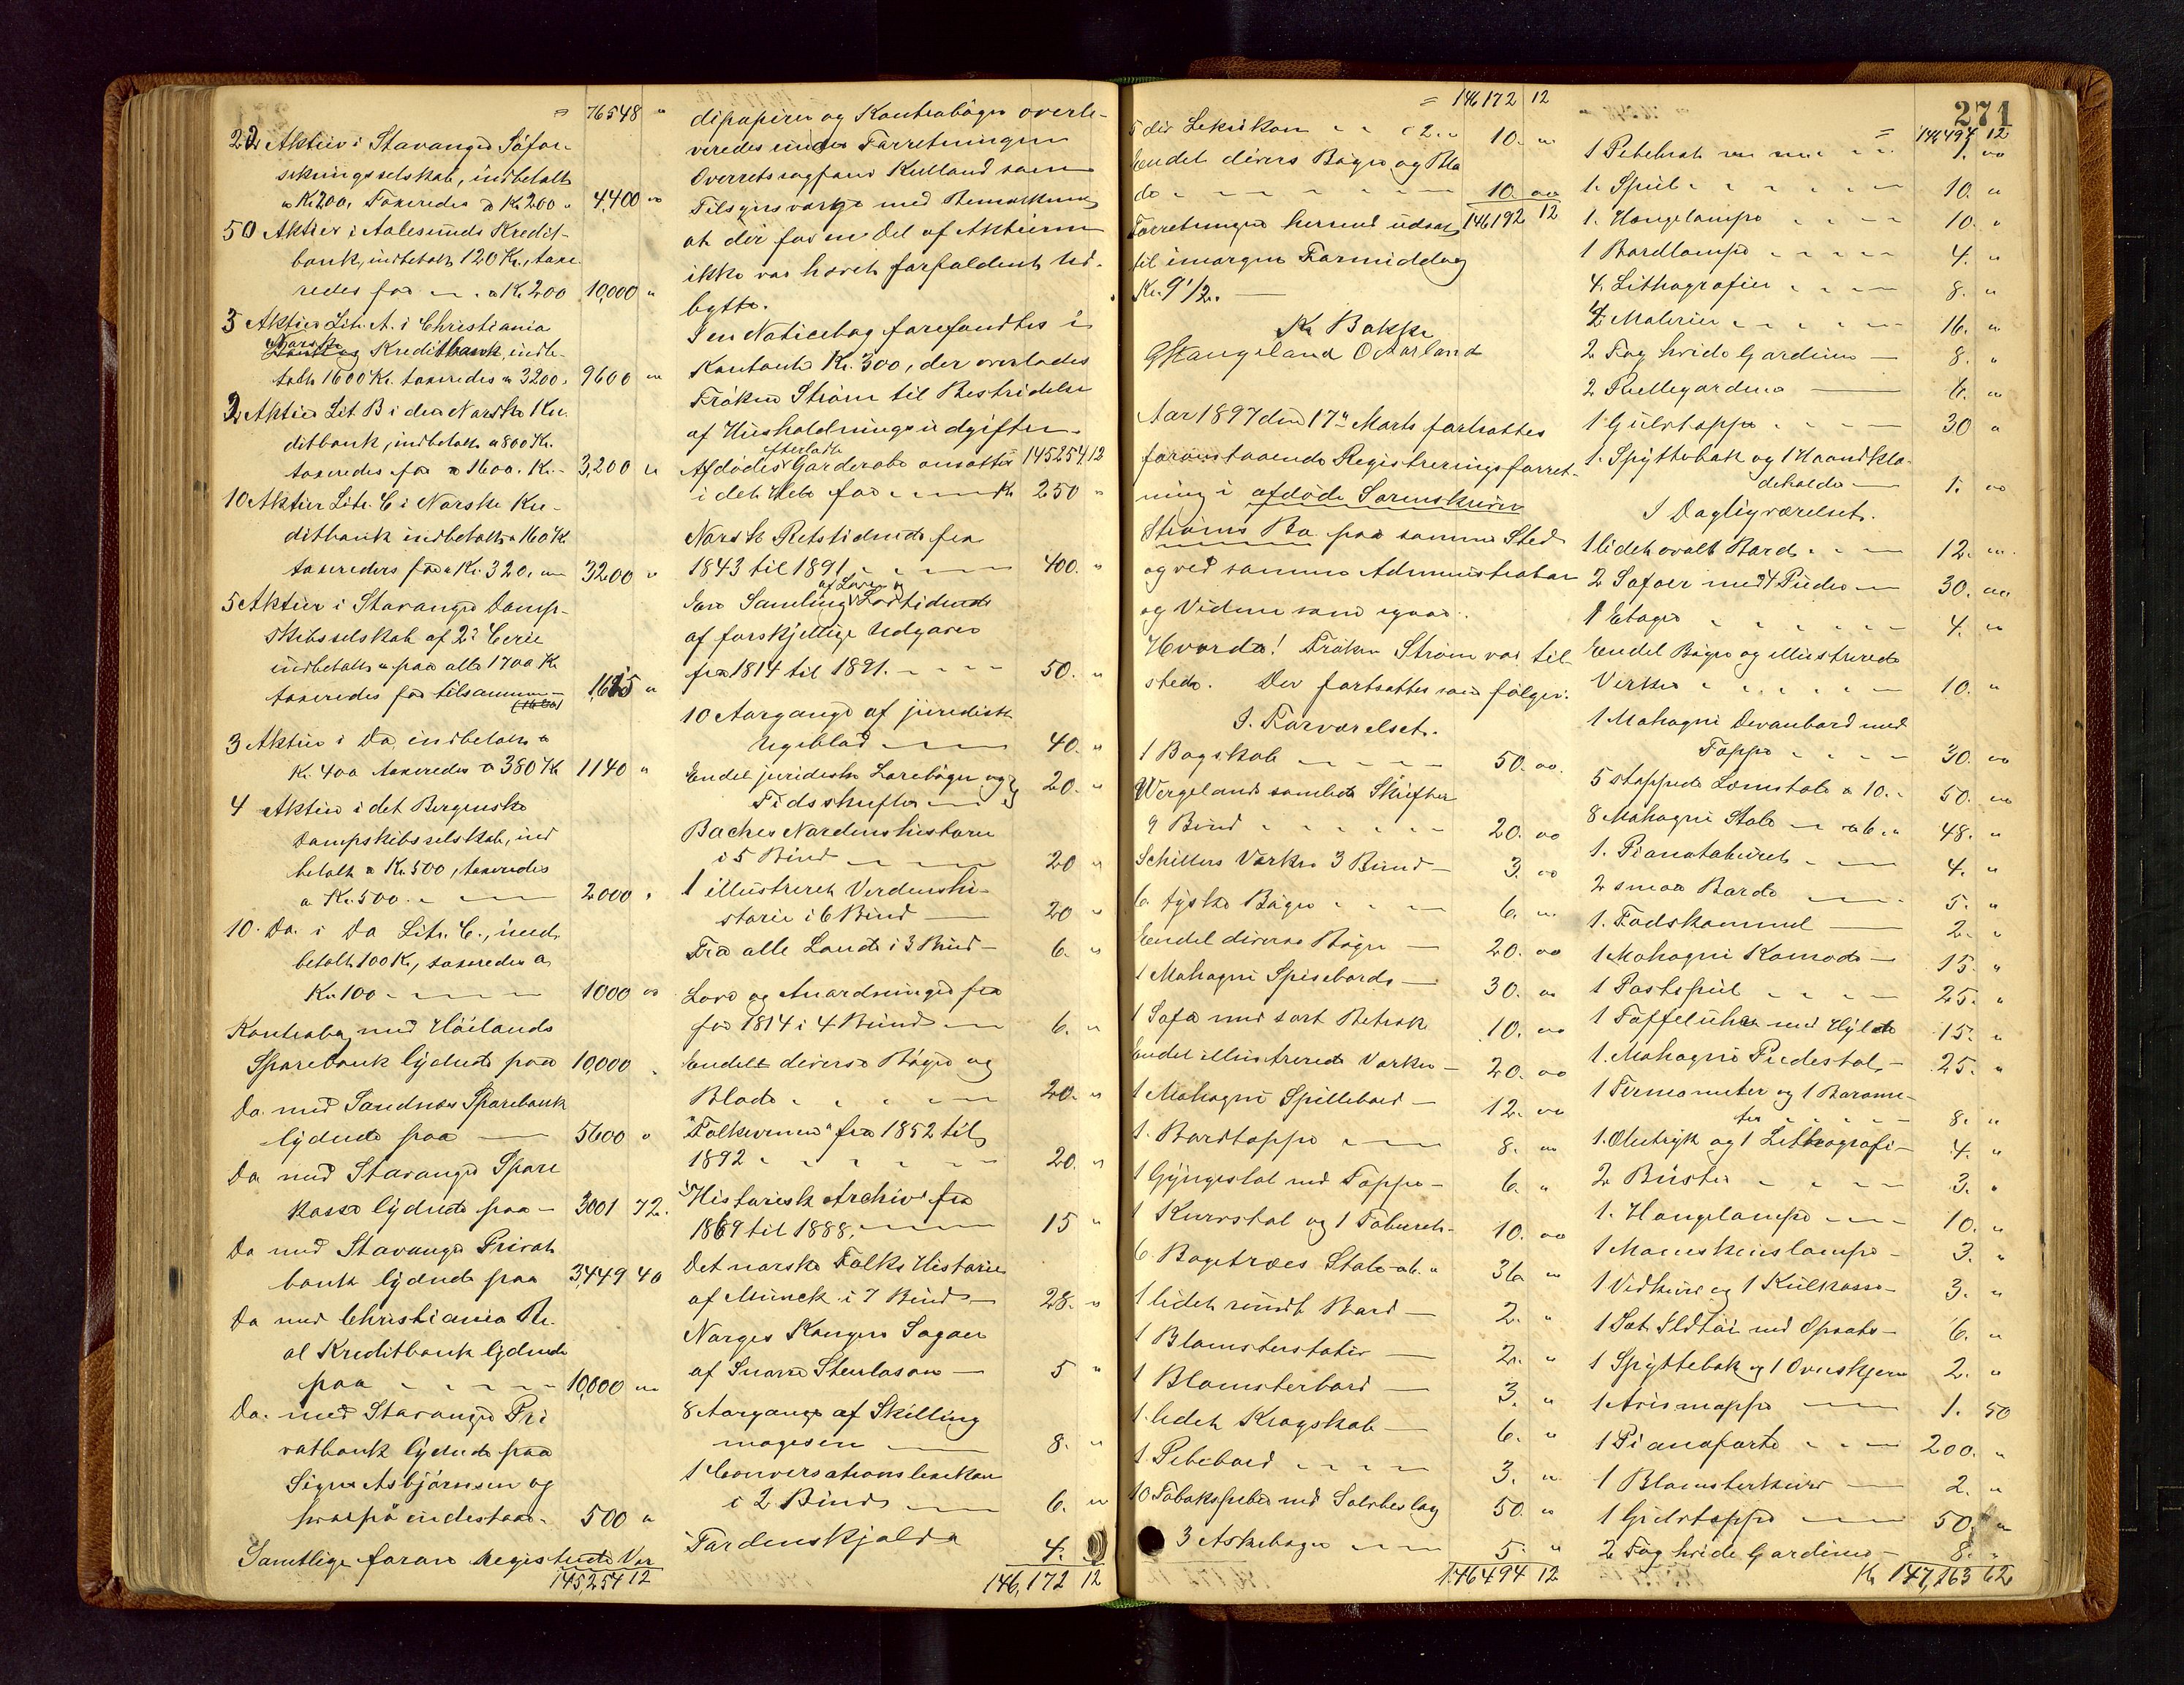 = 76548 "
22 Aktier i Stavanger Söfor-
sikringsselskab, indbetalt
a Kr 200, Taxeredes a Kr 200 " 4,400 "
50 Aktier i Aalesunds Kredit-
bank, indbetalt 120 Kr., taxe
redes for - . a Kr 200 10,000 "
3 Aktier Litr. A. i Christiania
Norske
Kreditbank, indbe-
talt 1600 Kr. taxeredes a 3200. 9600 "
2 Aktier Lit. B i den Norske Kre
ditbank, indbetalt a 800 Kr.
taxeredes for a 1600. Kr. - 3,200 "
10 Aktier Litr. C i Norske Kre-
ditbank indbetalt a 160 Kr
taxereders for a Kr. 320, " 3200 "
5 Aktier i Stavanger Damp-
skibsselskab af 2den Serie
indbetalt paa alle 1700 Kr
taxeredes for tilsammen - 1,615 "
3 Aktier i Do, indbetalt a
Kr. 400 taxeredes a 380 Kr 1140 "
4 Aktier i det Bergenske
Dampskibsselskab, ind
betalt a Kr. 500, taxeredes
a Kr. 500. - - 2000 "
10. Do. i Do Litr. C., ind
betalt 100 Kr, taxeredes a
Kr. 100 - - - - 1000 "
Kontrabog med Höilands
Sparebank lydende paa 10,000 "
Do. med Sandnæs Sparebank
lydende paa - 5600 "
Do. med Stavanger Spare
kasse lydende paa - 3001 72.
Do med Stavanger Privat
bank lydende paa 3,449 40
Do med Christiania Re-
al Kreditbank lydende
paa - - - - 10,000 "
Do. med Stavanger Pri
vatbank lydende paa
Signe Asbjörnsen og
hvorpå indestaar. 500 "
Samtlige foran registrerede Vær
145,254 12
dipapirer og Kontrabøger overle-
veredes under Forretningen
Overretssagfører Kielland som
Tilsynsværge med Bemærkning
at der for en Del af Aktierne
ikke var hævet forfaldent Ud-
bytte.
I en Noticebog forefandtes i
Kontant Kr. 300, der overlodes
Frøken Strøm til Bestridelse
af Husholdningsudgifter.
efterladte
Afdødes Garderobe ansættes 145254 12
i det Hele for - - - Kr 250 "
Norsk Retstidende fra
1843 til 1891 - - - 400. "
af Love og
En Samling Lovtidende
af forskjellige Udgaver
fra 1814 til 1891. - - - 50. "
10 Aargange af juridisk
Ugeblad - - - 40. "
Endel juridiske Lærebøger og
Tidsskrifter - 20. "
Baches Nordens historie
i 5 Bind - - - 20 "
1 illustreret Verdenshi-
storie i 6 Bind - 20 "
Fra alle Lande i 3 Bind - 6. "
Love og Anordninger fra
før 1814 i 4 Bind - 6. "
Endel diverse Bøger og
Blade . . . - - 20. "
"Folkevennen" fra 1852 til
1892 - - - - - 20. "
"Historisk Archiv" fra
1869 til 1888. - - - 15 "
Det norske Folks Historie
af Munck i 7 Bind - 28. "
Norges Kongers Sagaer
af Snorre Sturlason - 5 "
8 Aargange af Skilling
magasin - 8. "
1 Conversationslexikon
i 2 Bind - 6. "
Tordenskjold a 4.
146,172 12
= 146172 12
5 div Leksikon - - a 2. " 10. "
Endel divers Bøger og Bla
de - - - - - 10. oo
Forretningen hermed udsat 146192 12
til imorgen Formiddag
Kl. 9 1/2. -
K. Bakke
G Stangeland O Aarland
Aar 1897 den 17de Marts fortsattes
foranstaaende Registreringsforret-
ning i afdøde Sorenskriver
Strøms Bo paa samme Sted
og ved samme Administrator
og Vidner som igaar.
Hvorda! Frøken Strøm var til
stede. Der fortsattes som følger:
I. Forværelset.
1 Bogskab - - - - 50. oo.
Wergelands samlede Skrifter
9 Bind - - - - - 20. oo
Schillers Værker 3 Bind - 3. oo
6 tyske Bøger - - - 6. "
Endel diverse Bøger - 20. oo
1 Mahogni Spisebord - 30. oo
1 Sofa med sort Betræk 10. oo
Endel illustrerede Værker - 20. oo
1 Mahogni Spillebord - 12. oo
1. Bordtæppe - - 8. "
1 Gyngestol med Tæppe - 6. "
1 Kurvstol og 1 Taburet - 10. oo
6. Bøgetræes Stole a 6. " 36 "
1 lidet rundt Bord - 2. "
1 Blomsterstativ - 2. "
1 Blomsterbord - 3. "
1. lidet Krogskab - 6. "
1. Pibebord - - - - 3. "
10 Tobakspiber med Sølvbeslag 50. "
3 Askebæger - - - 5. "
146494 12
271
= 146,494 12
1 Pibebræt - - - 1. oo
1. Speil - - - - - 10. "
1. Hængelampe - - - 10. "
1 Bordlampe - - - - 4. "
4. Lithografier - - - 8. "
4 Malerier - - - - 16. "
2 Fag hvide Gardiner - 8. "
2 Rullegardiner - 6. "
1 Gulvtæppe - - - 30 "
1. Spyttebak og 1 Haandklæ
deholder - 1. oo
I Dagligværelset.
1 lidet ovalt Bord - - - 12. "
2 Sofaer med 4 Puder - 30. oo
1 Etagere - - - - - 4. "
Endel Bøger og illustrerede
Verker - - - - - 10. "
1 Mahogni Devanbord med
Tæppe - - - - 30. oo
5 stoppede Lænestole a 10. - 50. oo
8 Mahogni Stole - a 6. " 48. "
1. Pianotaburet - - 4. "
2 smaa Borde - - 5. "
1. Fodskammel - 2. "
1 Mahogni Komode - 15. "
1 Postspeil - - - - 25. "
1 Taffeluhr med Hylde 15. "
1. Mahogni Piedestal - 25. "
1 Termometer og 1 Barome-
ter - - - - - 8. "
1. Olietryk og 1 Lithografi - 4. "
2 Buster - - - - 3. "
1. Hængelampe - - - 10. "
1 Maaneskinslampe - 3. "
1 Vedkurv og 1 Kulkasse - 3. "
1 Sæt Ildtøi med Opsats - 6. "
1 Spyttebak og 1 Ovnskjerm 2. "
1 Avismappe - - 1. 50
1 Pianoforte - - - 200. "
1 Blomsterkurv - 2. "
1 Gulvtæppe - - 50. "
2 Fag hvide Gardiner - 8. "
Kr 147,163 62